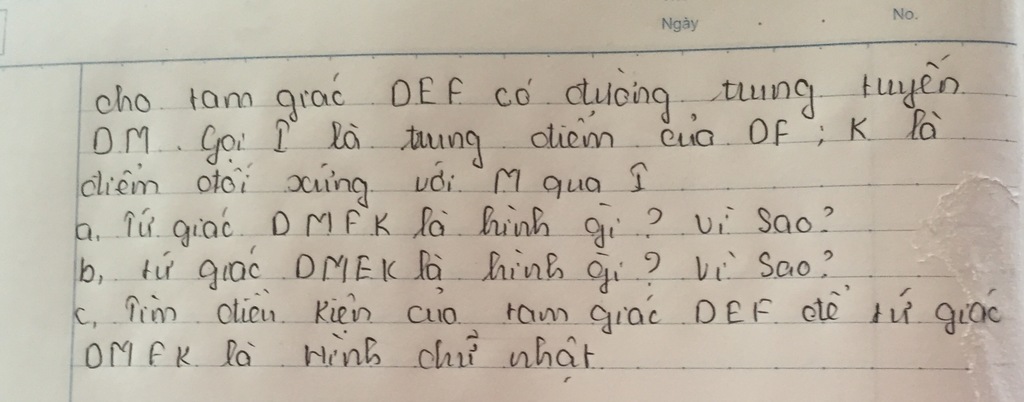 Ngày
No.
cho tam giác DEF có đường trung tuyến
DM. Gọi I là trung điểm của DF; K là
điểm đối xứng với M qua I
a, Tứ giác DMFK là hình gì? Vì Sao?
b, tứ giác DMEK là hình gì? Vì Sao?
c, Tìm điều kiện của tam giác DEF để tứ giác
DMFK là Hình chữ nhật